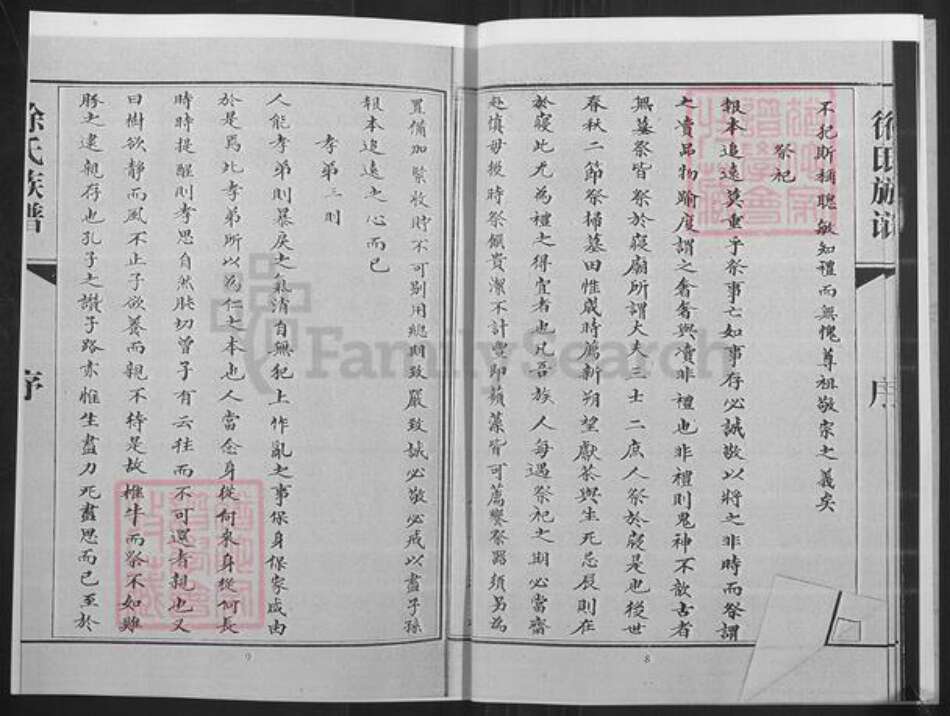 徐氏族譜
序
不犯斯稱聰敏知禮而無愧尊祖敬宗之義矣
祭祀
報本追遠莫重乎祭事亡如事存必誠敬以將之非時而祭謂
之凟品物踰度謂之奢奢與凟非禮也非禮則鬼神不歆古者
無墓祭皆祭於寢廟所謂大夫三士二庶人祭於寢是也後世
春秋二節祭掃墓田惟歲時薦新朔望獻茶與生死忌辰則在
於寢此尤為禮之得宜者也凡吾族人每遇祭祀之期必當齋
赴慎毋後時祭饌貴潔不計豐即蘋藻皆可薦饗祭器須另為
8
置備加謹收時不可別用總期致嚴致誠必敬必戒以盡子孫
報本追遠之心而已
孝弟三則
人能孝弟則暴戾之氣消自無犯上作亂之事保身保家咸由
於是焉此孝弟所以為仁之本也人當念身從何來身從何長
時時提醒則孝思自然肫切曾子有云往而不可還者親也又
曰樹欲静而風不止子欲養而親不待是故椎牛而祭不如雞
豚之逮親存也孔子之讚子路亦惟生盡力死盡思而已至於
9
徐氏族譜
序
FamilySearch